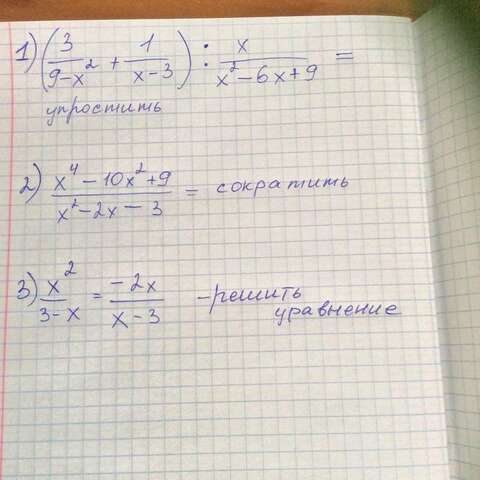 1) (3/(9-x²) + 1/(x-3)) : x/(x²-6x+9) =
упростить
2) (x⁴-10x²+9)/(x²-2x-3) = сократить
3) x²/(3-x) = -2x/(x-3) - решить
уравнение